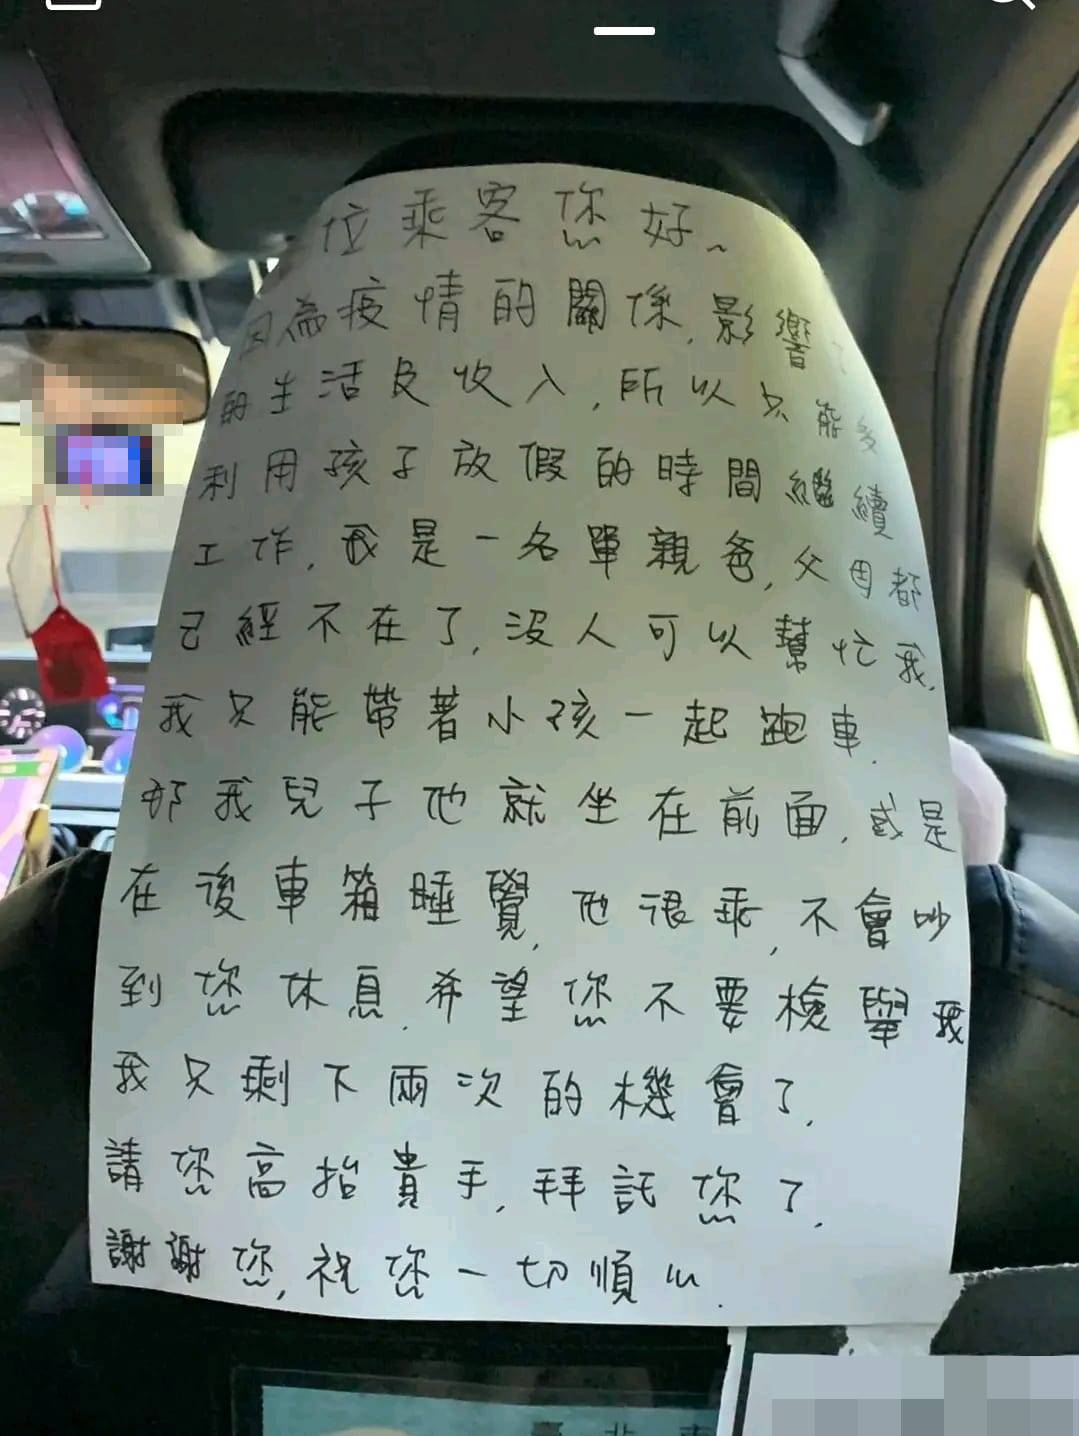 位乘客您好~
因為疫情的關係,影響了
的生活及收入,所以只能多
利用孩子放假的時間繼續
工作,我是一名單親爸,父母都
已經不在了,沒人可以幫忙我.
我只能帶著小孩一起跑車.
那我兒子他就坐在前面,或是
在後車箱睡覺,他很乖,不會吵
到您休息.希望您不要檢舉我
我只剩下兩次的機會了,
請您高抬貴手,拜託您了,
謝謝您,祝您一切順心.